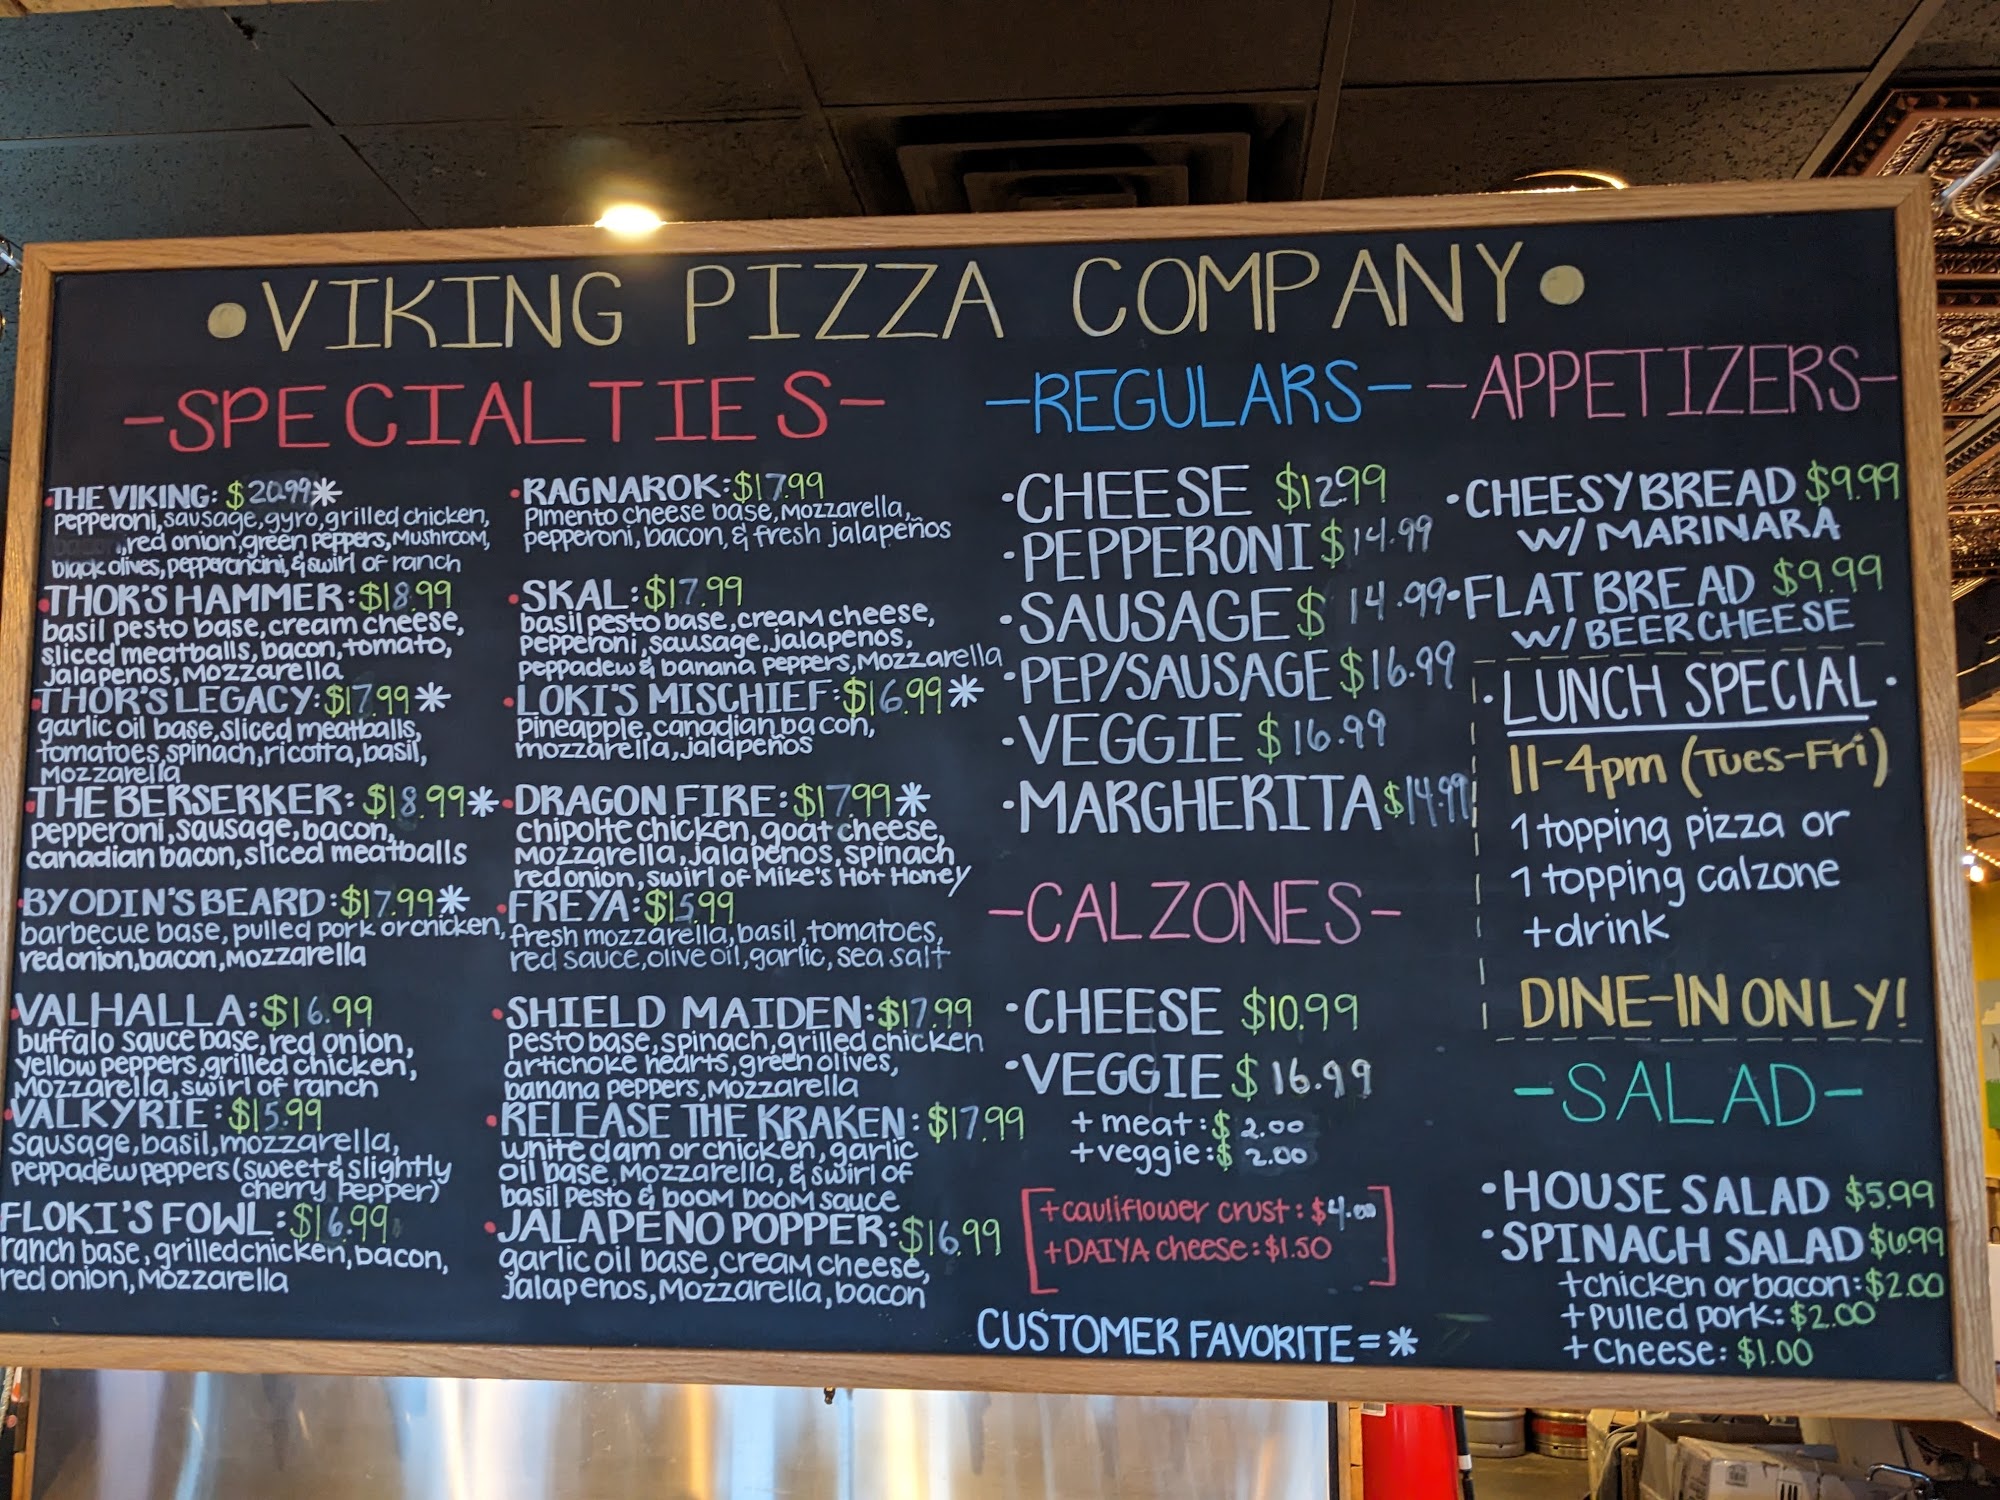 •VIKING PIZZA COMPANY•
-SPECIALTIES-
•THE VIKING: $20.99*
pepperoni, sausage, gyro, grilled chicken,
, red onion, green peppers, Mushroom,
black olives, pepperoncini, & swirl of ranch
•THOR'S HAMMER: $18.99
basil pesto base, cream cheese,
sliced meatballs, bacon, tomato,
jalapenos, Mozzarella
•THOR'S LEGACY: $17.99*
garlic oil base, sliced meatballs,
tomatoes, spinach, ricotta, basil,
Mozzarella
•THE BERSERKER: $18.99*
pepperoni, sausage, bacon,
canadian bacon, sliced meatballs
•BY ODIN'S BEARD: $17.99*
barbecue base, pulled pork or chicken,
red onion, bacon, Mozzarella
•VALHALLA: $16.99
buffalo sauce base, red onion,
yellow peppers, grilled chicken,
Mozzarella, swirl of ranch
•VALKYRIE: $15.99
sausage, basil, mozzarella,
peppadew peppers (sweet & slightly
cherry pepper)
FLOKI'S FOWL: $16.99
ranch base, grilled chicken, bacon,
red onion, Mozzarella
•RAGNAROK: $17.99
Pimento cheese base, Mozzarella,
pepperoni, bacon, & fresh jalapeños
•SKAL: $17.99
basil pesto base, cream cheese,
pepperoni, sausage, jalapenos,
peppadew & banana peppers, Mozzarella
•LOKI'S MISCHIEF: $16.99*
pineapple, canadian bacon,
mozzarella, jalapeños
•DRAGON FIRE: $17.99*
chipotte chicken, goat cheese,
Mozzarella, jalapenos, spinach
red onion, swirl of Mike's Hot Honey
•FREYA: $15.99
fresh mozzarella, basil, tomatoes,
red sauce, olive oil, garlic, sea salt
•SHIELD MAIDEN: $17.99
pesto base, spinach, grilled chicken
artichoke hearts, green olives,
banana peppers, Mozzarella
•RELEASE THE KRAKEN: $17.99
white clam or chicken, garlic
oil base, Mozzarella, & swirl of
basil pesto & boom boom sauce
•JALAPENO POPPER: $16.99
garlic oil base, cream cheese,
jalapenos, Mozzarella, bacon
-REGULARS-
•CHEESE $12.99
•PEPPERONI $14.99
•SAUSAGE $14.99
•PEP/SAUSAGE $16.99
•VEGGIE $16.99
•MARGHERITA $14.99
-CALZONES-
•CHEESE $10.99
•VEGGIE $16.99
+ meat: $2.00
+ veggie: $2.00
+ cauliflower crust: $4.00
+ DAIYA cheese: $1.50
CUSTOMER FAVORITE = *
-APPETIZERS-
•CHEESY BREAD $9.99
W/ MARINARA
•FLAT BREAD $9.99
W/ BEER CHEESE
•LUNCH SPECIAL•
11-4pm (Tues-Fri)
1 topping pizza or
1 topping calzone
+ drink
DINE-IN ONLY!
-SALAD-
•HOUSE SALAD $5.99
•SPINACH SALAD $6.99
+ chicken or bacon: $2.00
+ pulled pork: $2.00
+ cheese: $1.00